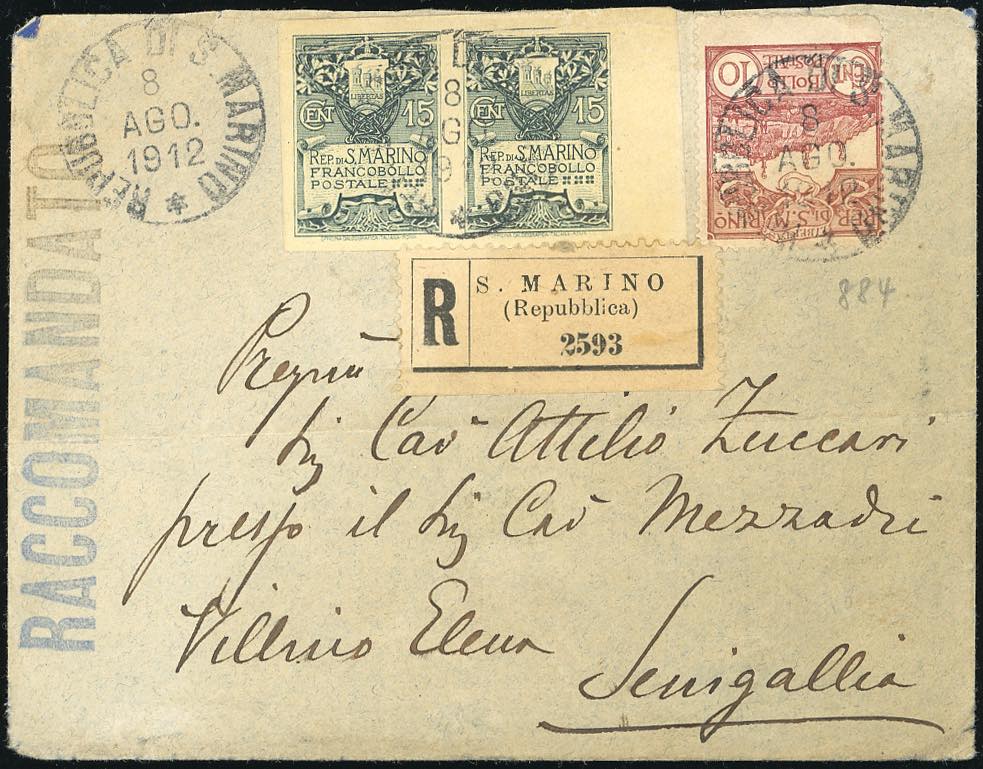 REPUBBLICA DI S. MARINO
8
AGO.
1912
RACCOMANDATO
LIBERTAS
CENT 15
REP. DI S. MARINO
FRANCOBOLLO
POSTALE
LIBERTAS
CENT 15
REP. DI S. MARINO
FRANCOBOLLO
POSTALE
8
AGO
CENT 10
BOLLO
POSTALE
REP. DI S. MARINO
8
AGO.
R
S. MARINO
(Repubblica)
2593
884
Sig Cav Attilio Zuccari
presso il Sig Cav Mezzadri
Villino Elena
Senigallia